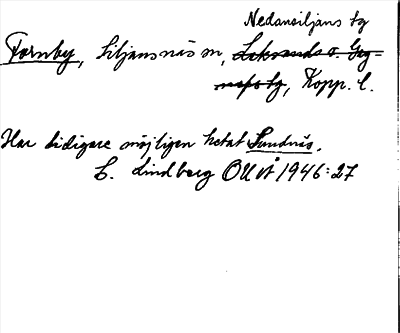 Nedansiljans tg
Fornby, Siljansnäs sn, Leksands o. Gag-
nefs tg, Kopp. l.
Har tidigare möjligen hetat Sundnäs.
L. Lindberg OUÅ 1946:27